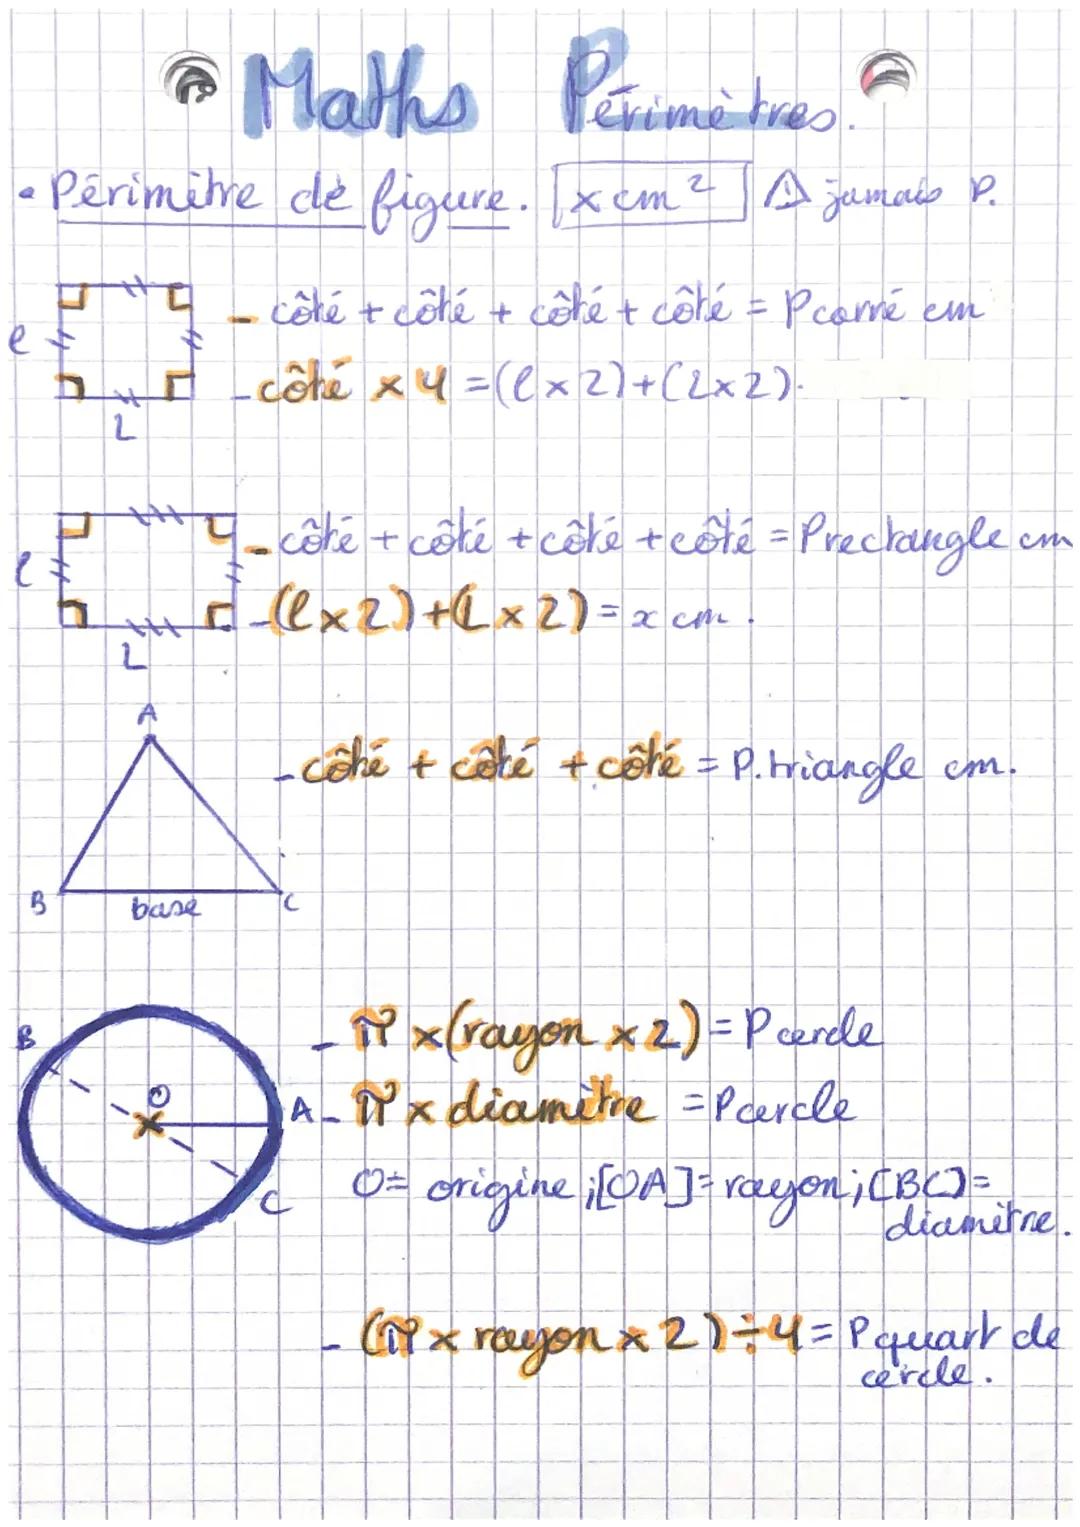 Maths Périmètres.
• Périmètre de figure. x cm² ⚠ jamais P.
- côté + côté + côté + côté = Pcarré cm
l
- côté x 4 = (l x 2) + (L x 2).
L
- côté + côté + côté + côté = Prectangle cm
l
- (l x 2) + (L x 2) = x cm.
L
A
- côté + côté + côté = P.triangle cm.
B base C
- π x (rayon x 2) = P cercle
B
O A
- π x diamètre = Pcercle
O = origine ; [OA] = rayon ; [BC] =
diamètre.
C
- (π x rayon x 2) ÷ 4 = P quart de
cercle.